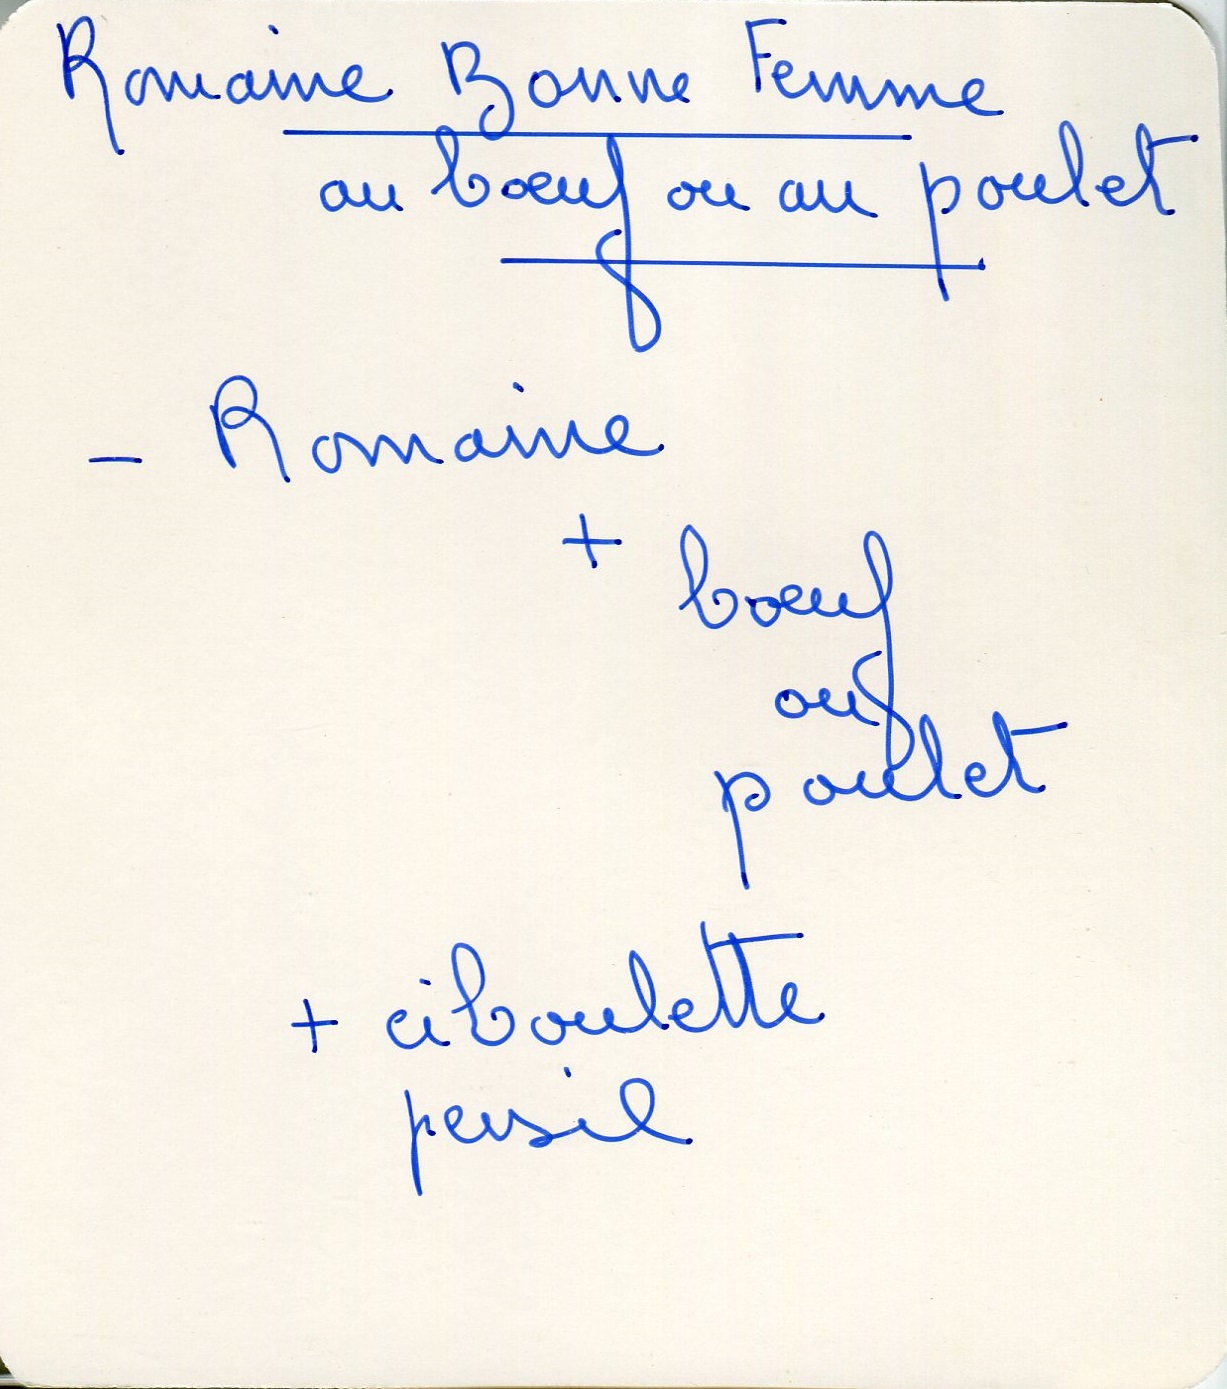 Romaine Bonne Femme
au bœuf ou au poulet
- Romaine
+ bœuf
ou
poulet
+ ciboulette
persil